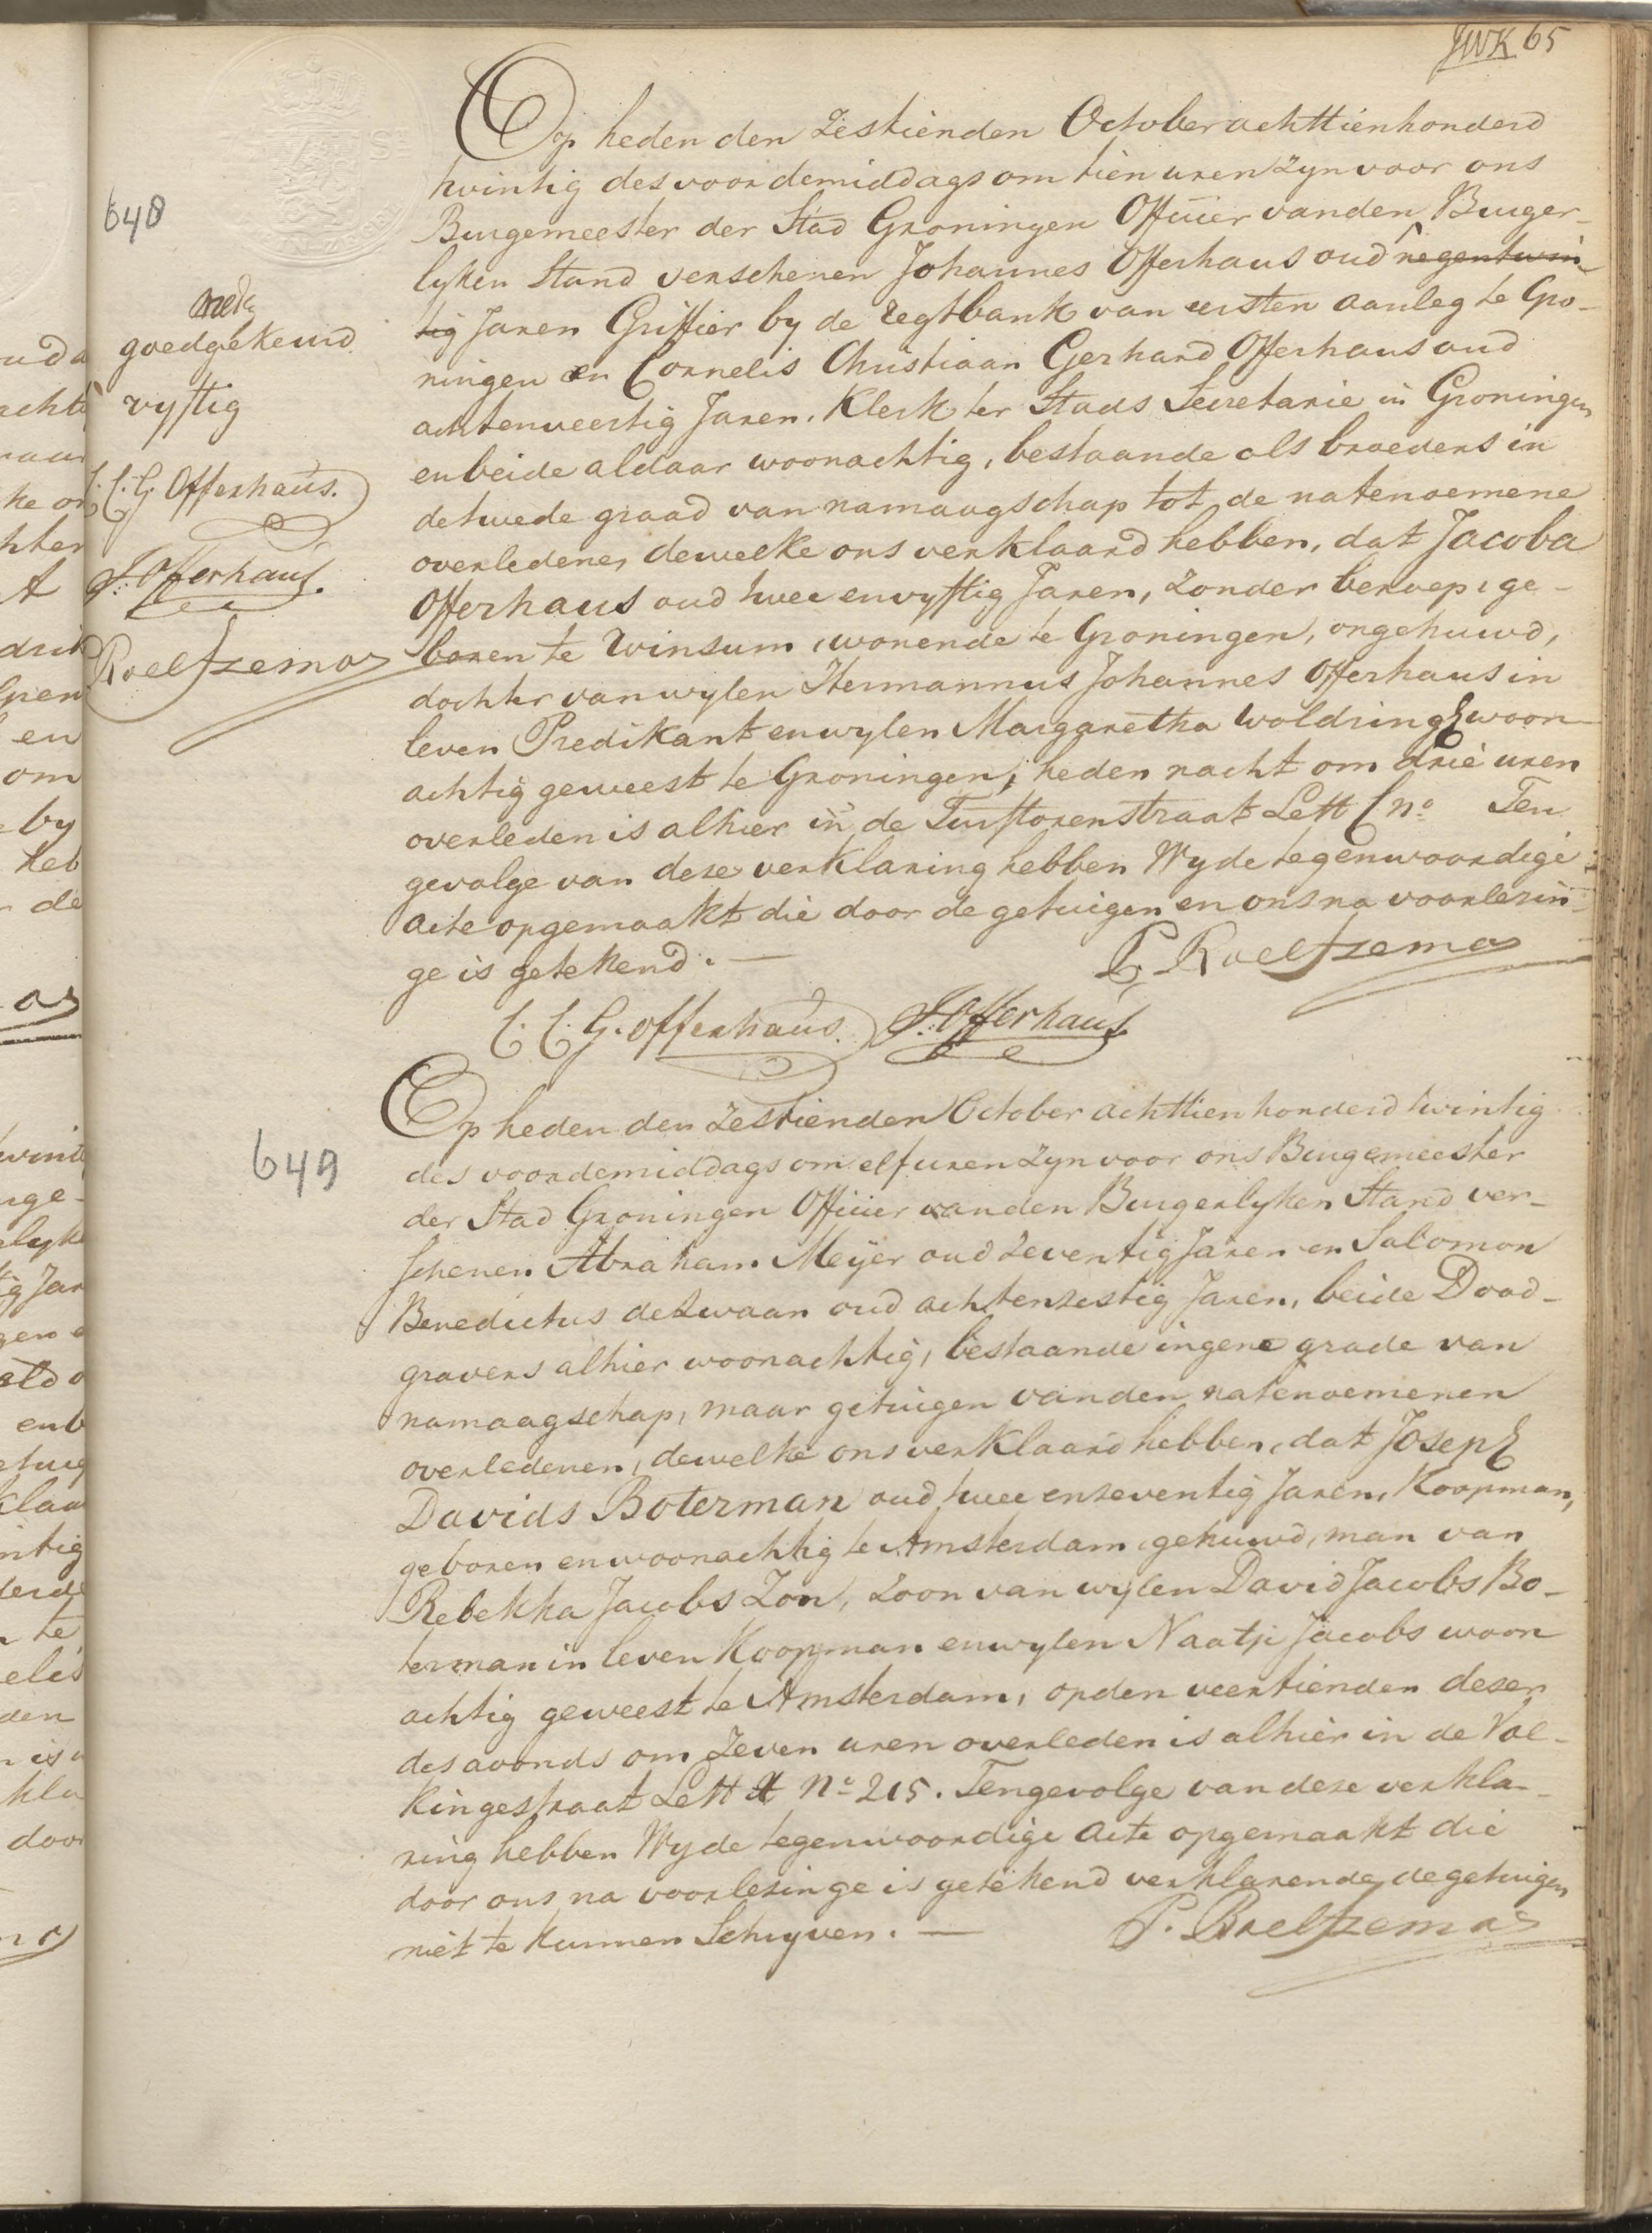 JWK 65
Op heden den Zestienden October achttienhonderd
twintig des voordemiddags om tien uren zyn voor ons
Burgemeester der Stad Groningen Officier van den Burger-
lyken Stand verschenen Johannes Offerhaus oud negentwin
tig Jaren Griffier by de regtbank van eersten aanleg te Gro-
ningen en Cornelis Christiaan Gerhard Offerhaus oud
achtenveertig Jaren, Klerk ter Stads Secretarie in Groningen
en beide aldaar woonachtig, bestaande als broeders in
de twede graad van namaagschap tot de natenoemene
overledene, dewelke ons verklaard hebben, dat Jacoba
Offerhaus oud twee envyftig Jaren, zonder beroep, ge-
boren te Winsum, wonende te Groningen, ongehuwd,
dochter van wylen Hermannus Johannes Offerhaus in
leven Predikant en wylen Margaretha Woldringh woon
achtig geweest te Groningen, heden nacht om drie uren
overleden is alhier in de Turftorenstraat Lett C no. Ten
gevolge van deze verklaring hebben Wy de tegenwoordige
acte opgemaakt die door de getuigen en ons na voorlesin
ge is getekend. —
P. Roelfzema
C. C. G. Offerhaus. J: Offerhaus
648
goedgekeurd
vyftig
C. C. G. Offerhaus.
J: Offerhaus.
Roelfzema
649
Op heden den Zestienden October achttienhonderd twintig
des voordemiddags om elf uren zyn voor ons Burgemeester
der Stad Groningen Officier van den Burgerlyken Stand ver-
schenen Abraham Meyer oud zeventig Jaren en Salomon
Benedictus de Zwaan oud achtenzestig Jaren, beide Dood-
gravers alhier woonachtig, bestaande in gene grade van
namaagschap, maar getuigen van den natenoemenen
overledenen, dewelke ons verklaard hebben, dat Joseph
Davids Boterman oud twee enzeventig Jaren, Koopman,
geboren en woonachtig te Amsterdam, gehuwd, man van
Rebekka Jacobs Zon, zoon van wylen David Jacobs Bo-
terman in leven Koopman en wylen Naatje Jacobs woon
achtig geweest te Amsterdam, op den veertienden dezer
des avonds om Zeven uren overleden is alhier in de Vol-
kingestraat Lett A No 215. Tengevolge van deze verkla-
ring hebben Wy de tegenwoordige acte opgemaakt die
door ons na voorlezinge is getekend verklarende de getuigen
niet te kunnen Schryven. —
P. Roelfzema